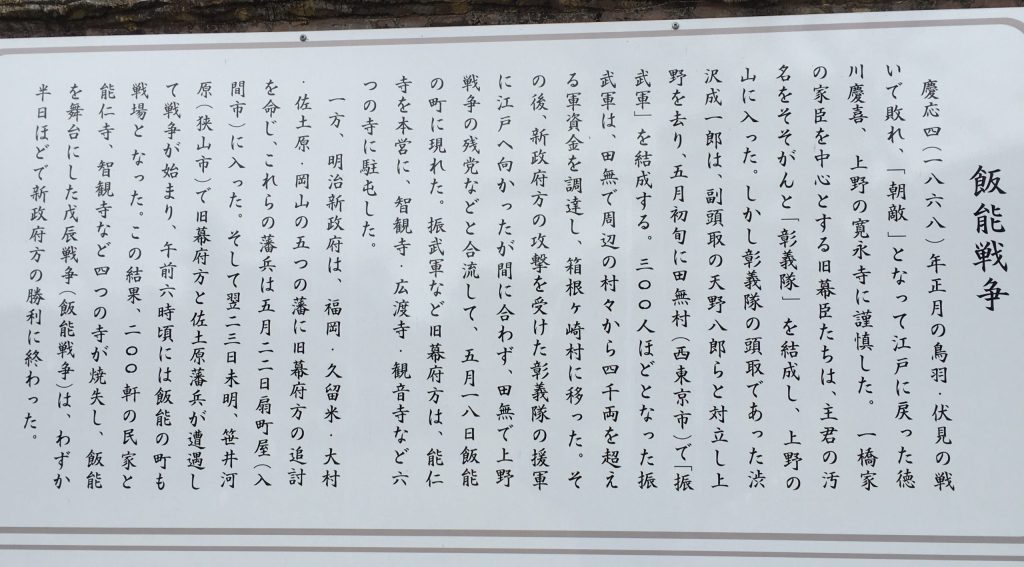 飯能戦争
慶応四(一八六八)年正月の鳥羽・伏見の戦
いで敗れ、「朝敵」となって江戸に戻った徳
川慶喜、上野の寛永寺に謹慎した。一橋家
の家臣を中心とする旧幕臣たちは、主君の汚
名をそそがんと「彰義隊」を結成し、上野の
山に入った。しかし彰義隊の頭取であった渋
沢成一郎は、副頭取の天野八郎らと対立し上
野を去り、五月初旬に田無村(西東京市)で「振
武軍」を結成する。三〇〇人ほどとなった振
武軍は、田無で周辺の村々から四千両を超え
る軍資金を調達し、箱根ヶ崎村に移った。そ
の後、新政府方の攻撃を受けた彰義隊の援軍
に江戸へ向かったが間に合わず、田無で上野
戦争の残党などと合流して、五月一八日飯能
の町に現れた。振武軍など旧幕府方は、能仁
寺を本営に、智観寺・広渡寺・観音寺など六
つの寺に駐屯した。
一方、明治新政府は、福岡・久留米・大村
・佐土原・岡山の五つの藩に旧幕府方の追討
を命じ、これらの藩兵は五月二二日扇町屋(入
間市)に入った。そして翌二三日未明、笹井河
原(狭山市)で旧幕府方と佐土原藩兵が遭遇し
て戦争が始まり、午前六時頃には飯能の町も
戦場となった。この結果、二〇〇軒の民家と
能仁寺、智観寺など四つの寺が焼失し、飯能
を舞台にした戊辰戦争(飯能戦争)は、わずか
半日ほどで新政府方の勝利に終わった。